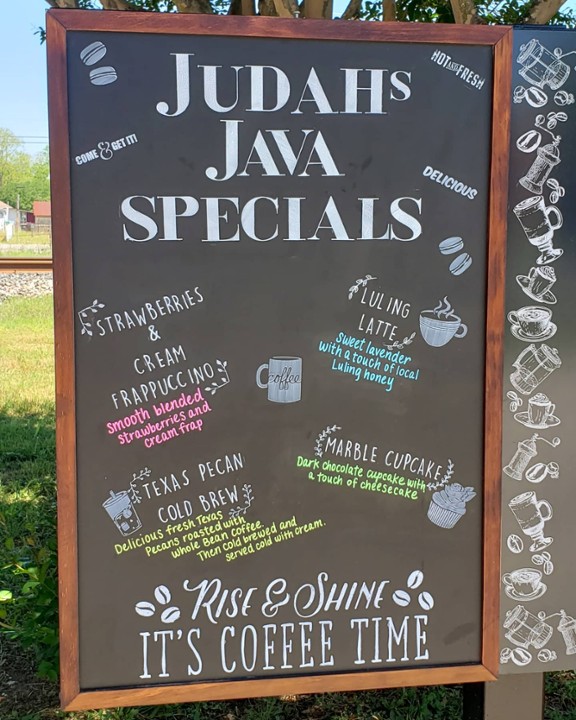 JUDAHS
JAVA
SPECIALS
HOT AND FRESH
COME & GET IT!
DELICIOUS
STRAWBERRIES
&
CREAM
FRAPPUCCINO
Smooth blended
strawberries and
cream frap
LULING
LATTE
Sweet lavender
with a touch of local
Luling honey
coffee
TEXAS PECAN
COLD BREW
Delicious fresh Texas
Pecans roasted with
whole Bean coffee.
Then cold brewed and
served cold with cream.
MARBLE CUPCAKE
Dark chocolate cupcake with
a touch of cheesecake
RISE & SHINE
IT'S COFFEE TIME